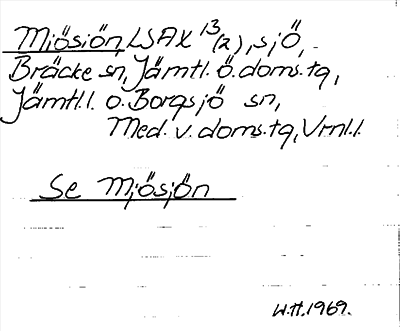 Miösiön, LSAX 13/(2), sjö,
Bräcke sn, Jämtl. ö. doms. tg,
Jämtl. l. o. Borgsjö sn,
Med. v. doms. tg, Vrnl. l.
Se Mjösjön
W.H. 1969.